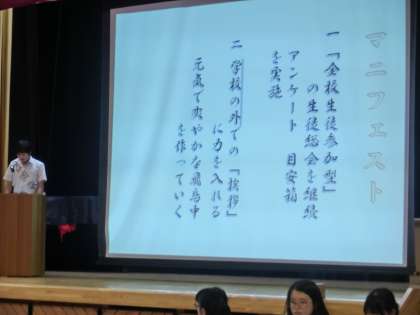 マニフェスト
一 「全校生徒参加型」
の生徒総会を継続
アンケート 目安箱
を実施
二 学校の外での「挨拶」
に力を入れる
元気で爽やかな飛島中
を作っていく